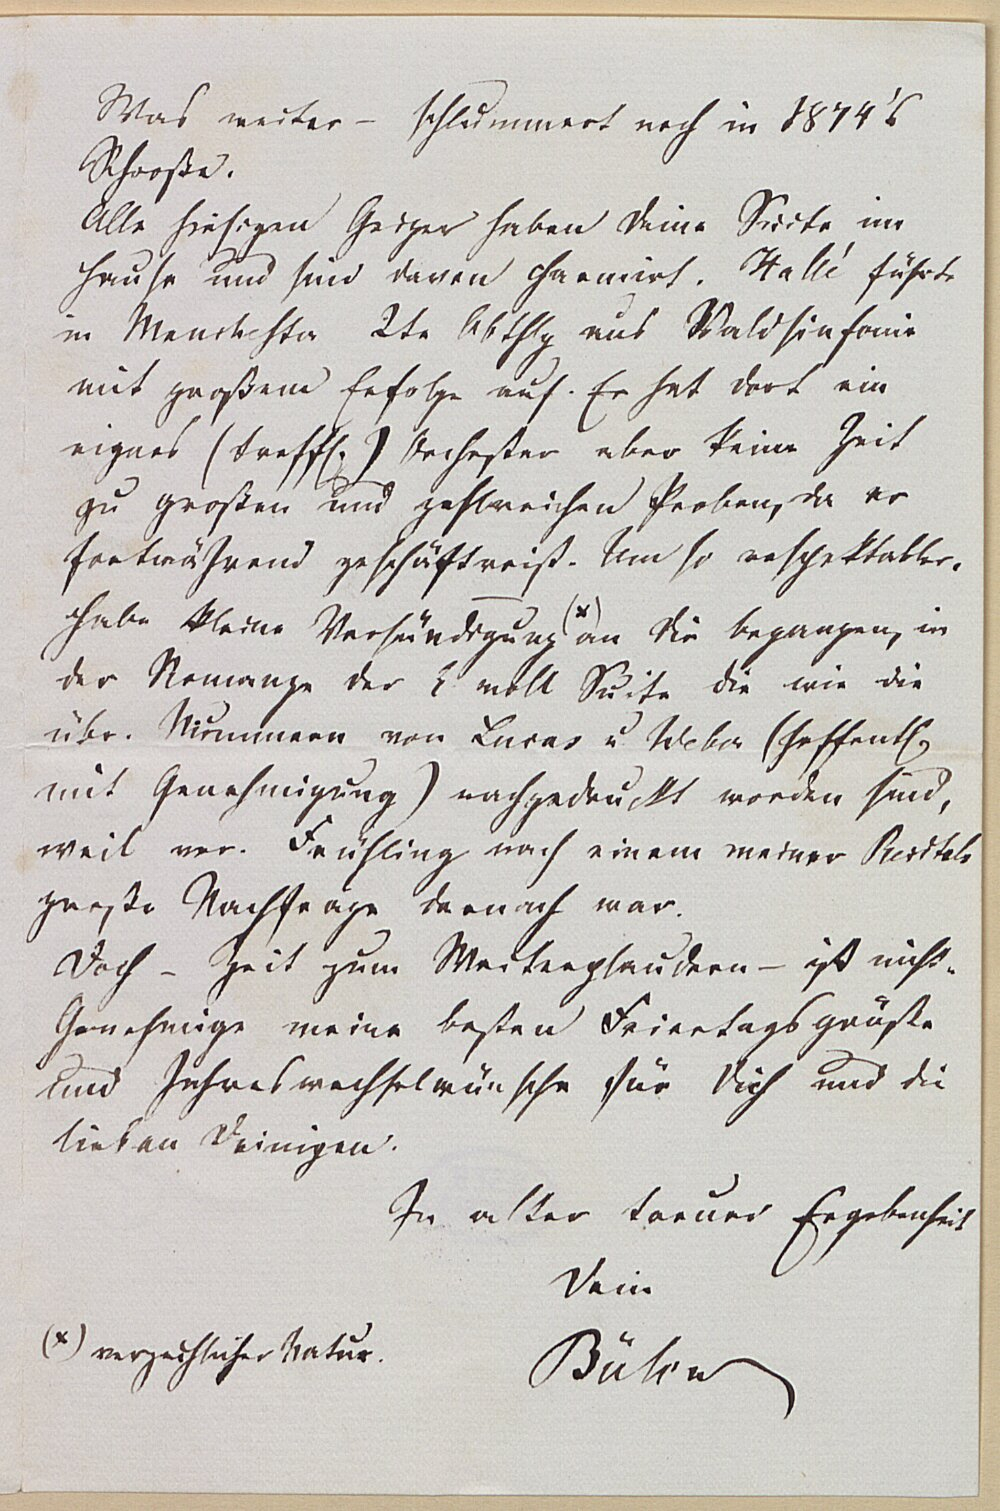 Was weiter – schlummert noch in 1874's
Schooße.
Alle hiesigen Geiger haben Deine Suite im
Hause und sind davon charmirt. Hallé führte
in Manchester 2te Abthlg aus Waldsinfonie
mit großem Erfolge auf. Er hat dort ein
eignes (treffl.) Orchester aber keine Zeit
zu großen und zahlreichen Proben, da er
fortwährend geschäftreist. Um so respektabler.
Habe kleine Versündigung (x) an Dir begangen, in
der Romanze der E moll Suite die wie die
übr. Nummern von Lucas u Weber (hoffentl.
mit Genehmigung) nachgedruckt worden sind,
weil vor. Frühling nach einem meiner Recitals
große Nachfrage darnach war.
Doch – Zeit zum Weiterplaudern – ist nicht.
Genehmige meine besten Feiertagsgrüße
und Jahreswechselwünsche für Dich und die
lieben Deinigen.
In alter treuer Ergebenheit
Dein
Bülow
(x) verzeihlicher Natur.